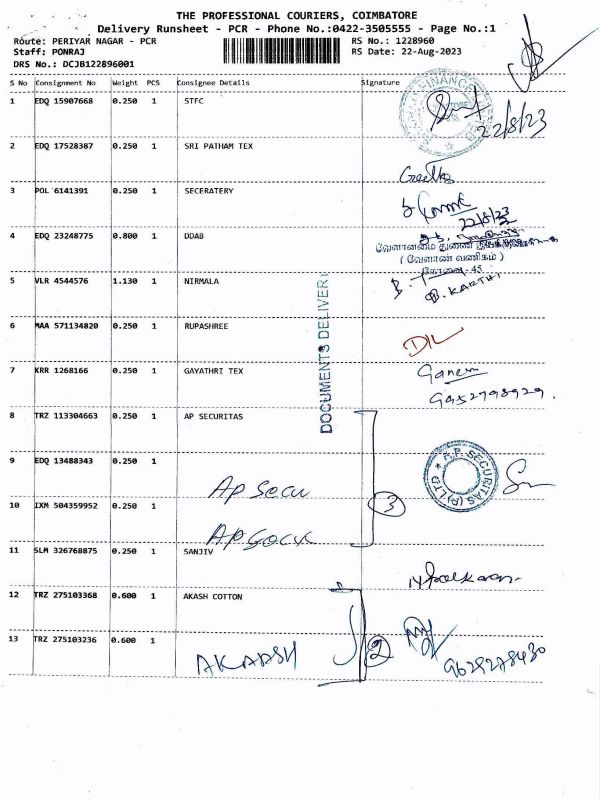 THE PROFESSIONAL COURIERS, COIMBATORE
Delivery Runsheet - PCR - Phone No.:0422-3505555 - Page No.:1
Route: PERIYAR NAGAR - PCR RS No.: 1228960
Staff: PONRAJ RS Date: 22-Aug-2023
DRS No.: DCJB122896001
S No Consignment No Weight PCS Consignee Details Signature
1 EDQ 15907668 0.250 1 STFC
22/8/23
2 EDQ 17528387 0.250 1 SRI PATHAM TEX
Geetha
3 POL 6141391 0.250 1 SECERATERY
22/8/23
4 EDQ 23248775 0.800 1 DDAB
வேளாண்மை துணை
( வேளாண் வணிகம் )
கோவை-45
5 VLR 4544576 1.130 1 NIRMALA
B. KARTHI
DOCUMENTS DELIVERY
6 MAA 571134820 0.250 1 RUPASHREE
D/L
7 KRR 1268166 0.250 1 GAYATHRI TEX
Ganesh
9452798929.
8 TRZ 113304663 0.250 1 AP SECURITAS
9 EDQ 13488343 0.250 1
Ap Secu
A.P. SECURITAS (P) LTD
3
10 IXM 504359952 0.250 1
Ap Secu
11 SLM 326768875 0.250 1 SANJIV
12 TRZ 275103368 0.600 1 AKASH COTTON
13 TRZ 275103236 0.600 1
AKAASH
2
9629278430